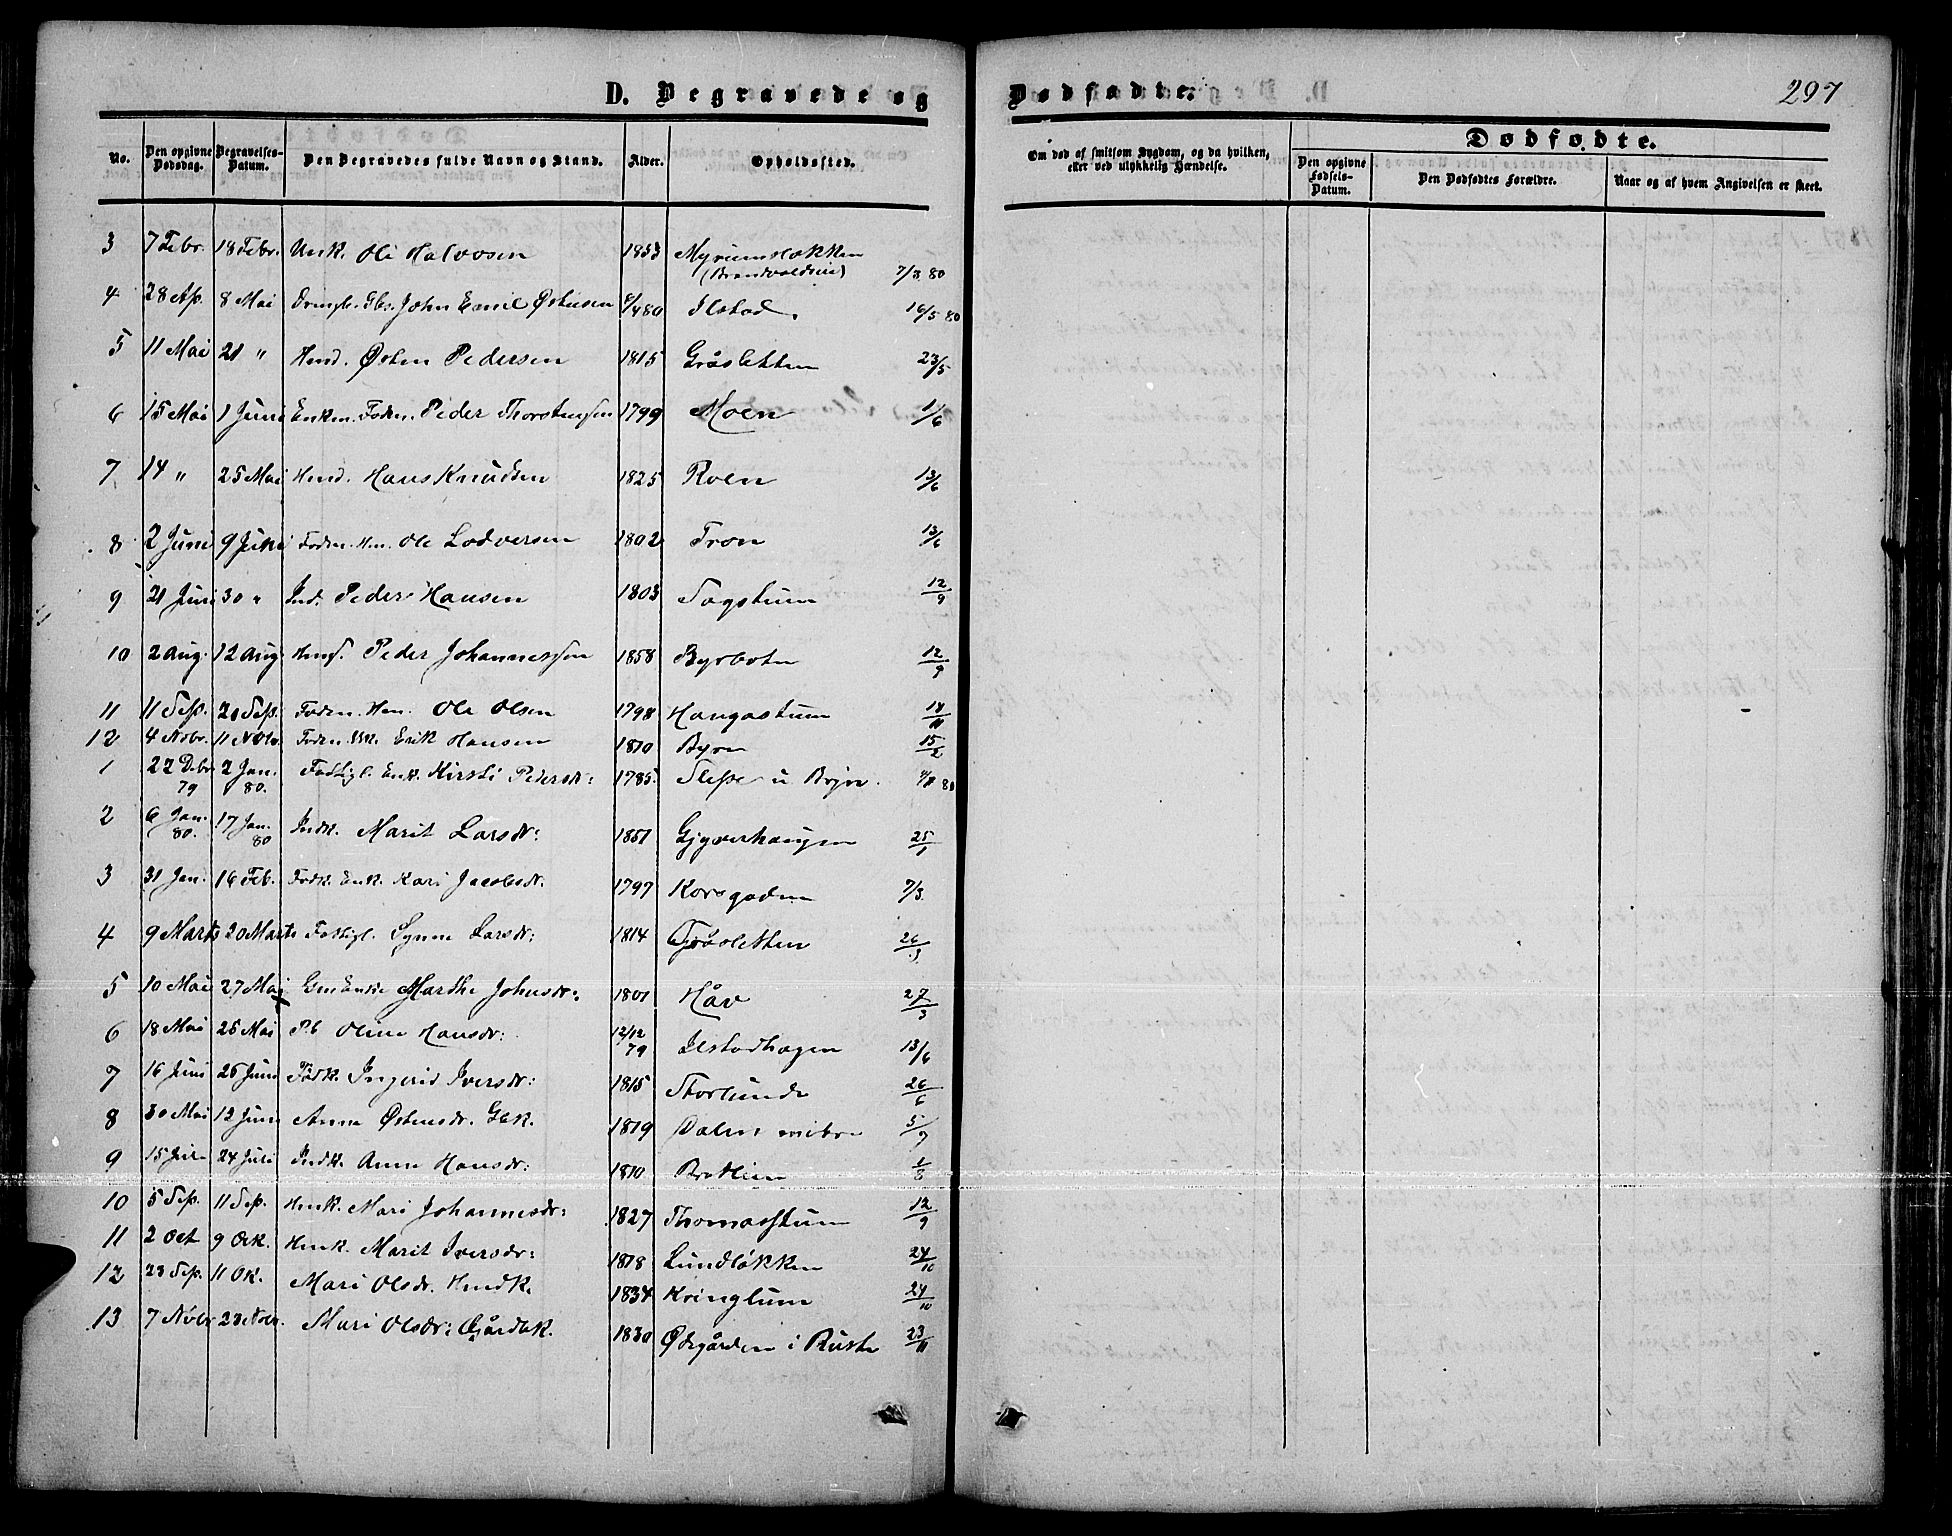 D. Begravede og
No. Den opgivne Dødsdag. Begravelses-Datum. Den Begravedes fulde Navn og Stand. Alder. Opholdssted.
3 7 Febr. 18 Febr. Unk. Ole Halvosen 1853 Myrumsløkken (Brandvoldseie) 7/3 80
4 28 Ap. 8 Mai John Emil Østensen 8/4 80 Ilstad. 16/5 80
5 11 Mai 21 " Hmd. Østen Pedersen 1815 Gråsletten 23/5
6 15 Mai 1 Juni Enkem. Foden. Peder Thorstensen 1799 Moen 1/6
7 14 " 25 Mai Hmd. Hans Knudsen 1825 Roen 13/6
8 2 Juni 9 Juni Foden. Hm. Ole Lodversen 1802 Tron 13/6
9 21 Juni 30 " Ind. Peder Hansen 1803 Sagstuen 12/9
10 2 Aug. 12 Aug. Peder Johannessen 1858 Byrboten 12/9
11 11 Sep. 20 Sep. Foden. Hm. Ole Olsen 1798 Haugastuen 14/11
12 4 Nobr. 11 Nobr. Foden. Erik Hansen 1810 Byre 15/2
1 22 Debr 79 2 Jan. 80. Fattigl. Enk. Kirsti Pedersdr: 1785. u Bryn.
2 6 Jan. 80. 17 Jan. 80 Indk. Marit Larsdr: 1851 Gjyverhaugen 25/1
3 31 Jan. 16 Feb. Fodk. Enk. Kari Jacobsdr. 1797 Korsgaden 7/3.
4 9 Marts 20 Marts Fattigl. Synne Larsdr: 1814 Gråsletten 26/3
5 10 Mai 27 Mai Enke Marthe Johnsdr: 1801 Håv 27/3
6 18 Mai 25 Mai Pb Oline Hansdr: 12/12 79 Ilstadhagen 13/6
7 16 Juni 26 Juni Fodk. Ingerid Iversdr: 1815 Storlunde 26/6
8 30 Mai 12 Juni Anne Østensdr. Gbk. 1819 Dalen 5/7
9 15 Juli 24 Juli Indk. Anne Hansdr: 1810 Bratlien 1/8
10 5 Sep. 11 Sep. Hmk. Mari Johannesdr: 1827 Thomasstuen 12/9
11 2 Oct 9 Ok. Hmk. Marit Iversdr: 1818 Lundløkken 24/10
12 23 Sep. 11 Ok. Mari Olsdr. Hmdk. 1834 Kringlum 24/10
13 7 Nobr 23 Nobr. Mari Olsdr: Gårdbk. 1830 Ødegården i Ruste 23/11
Dødfødte.
297
Om død af smitsom Sygdom, og da hvilken, eller ved ulykkelig Hændelse.
Dødfødte.
Den opgivne Fødsels-Datum. Den Dødfødtes Forældre. Naar og af hvem Angivelsen er skeet.